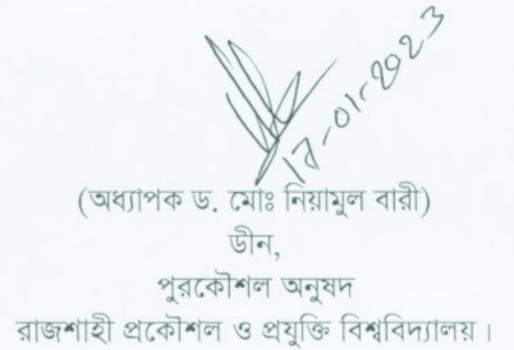 (অধ্যাপক ড. মোঃ নিয়ামুল বারী)
ডীন,
পুরকৌশল অনুষদ
রাজশাহী প্রকৌশল ও প্রযুক্তি বিশ্ববিদ্যালয়।